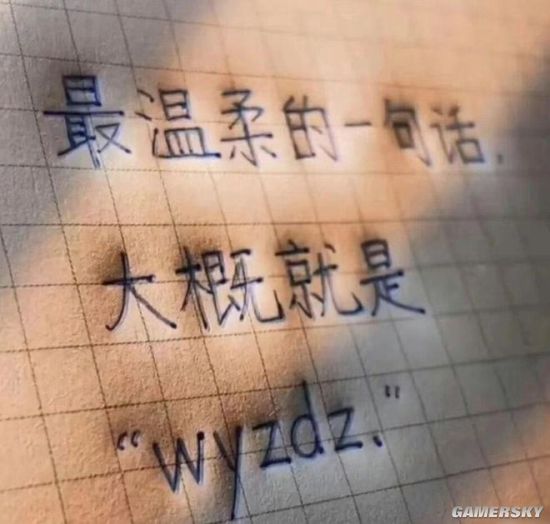 最温柔的一句话,
大概就是
“wyzdz.”
GAMERSKY